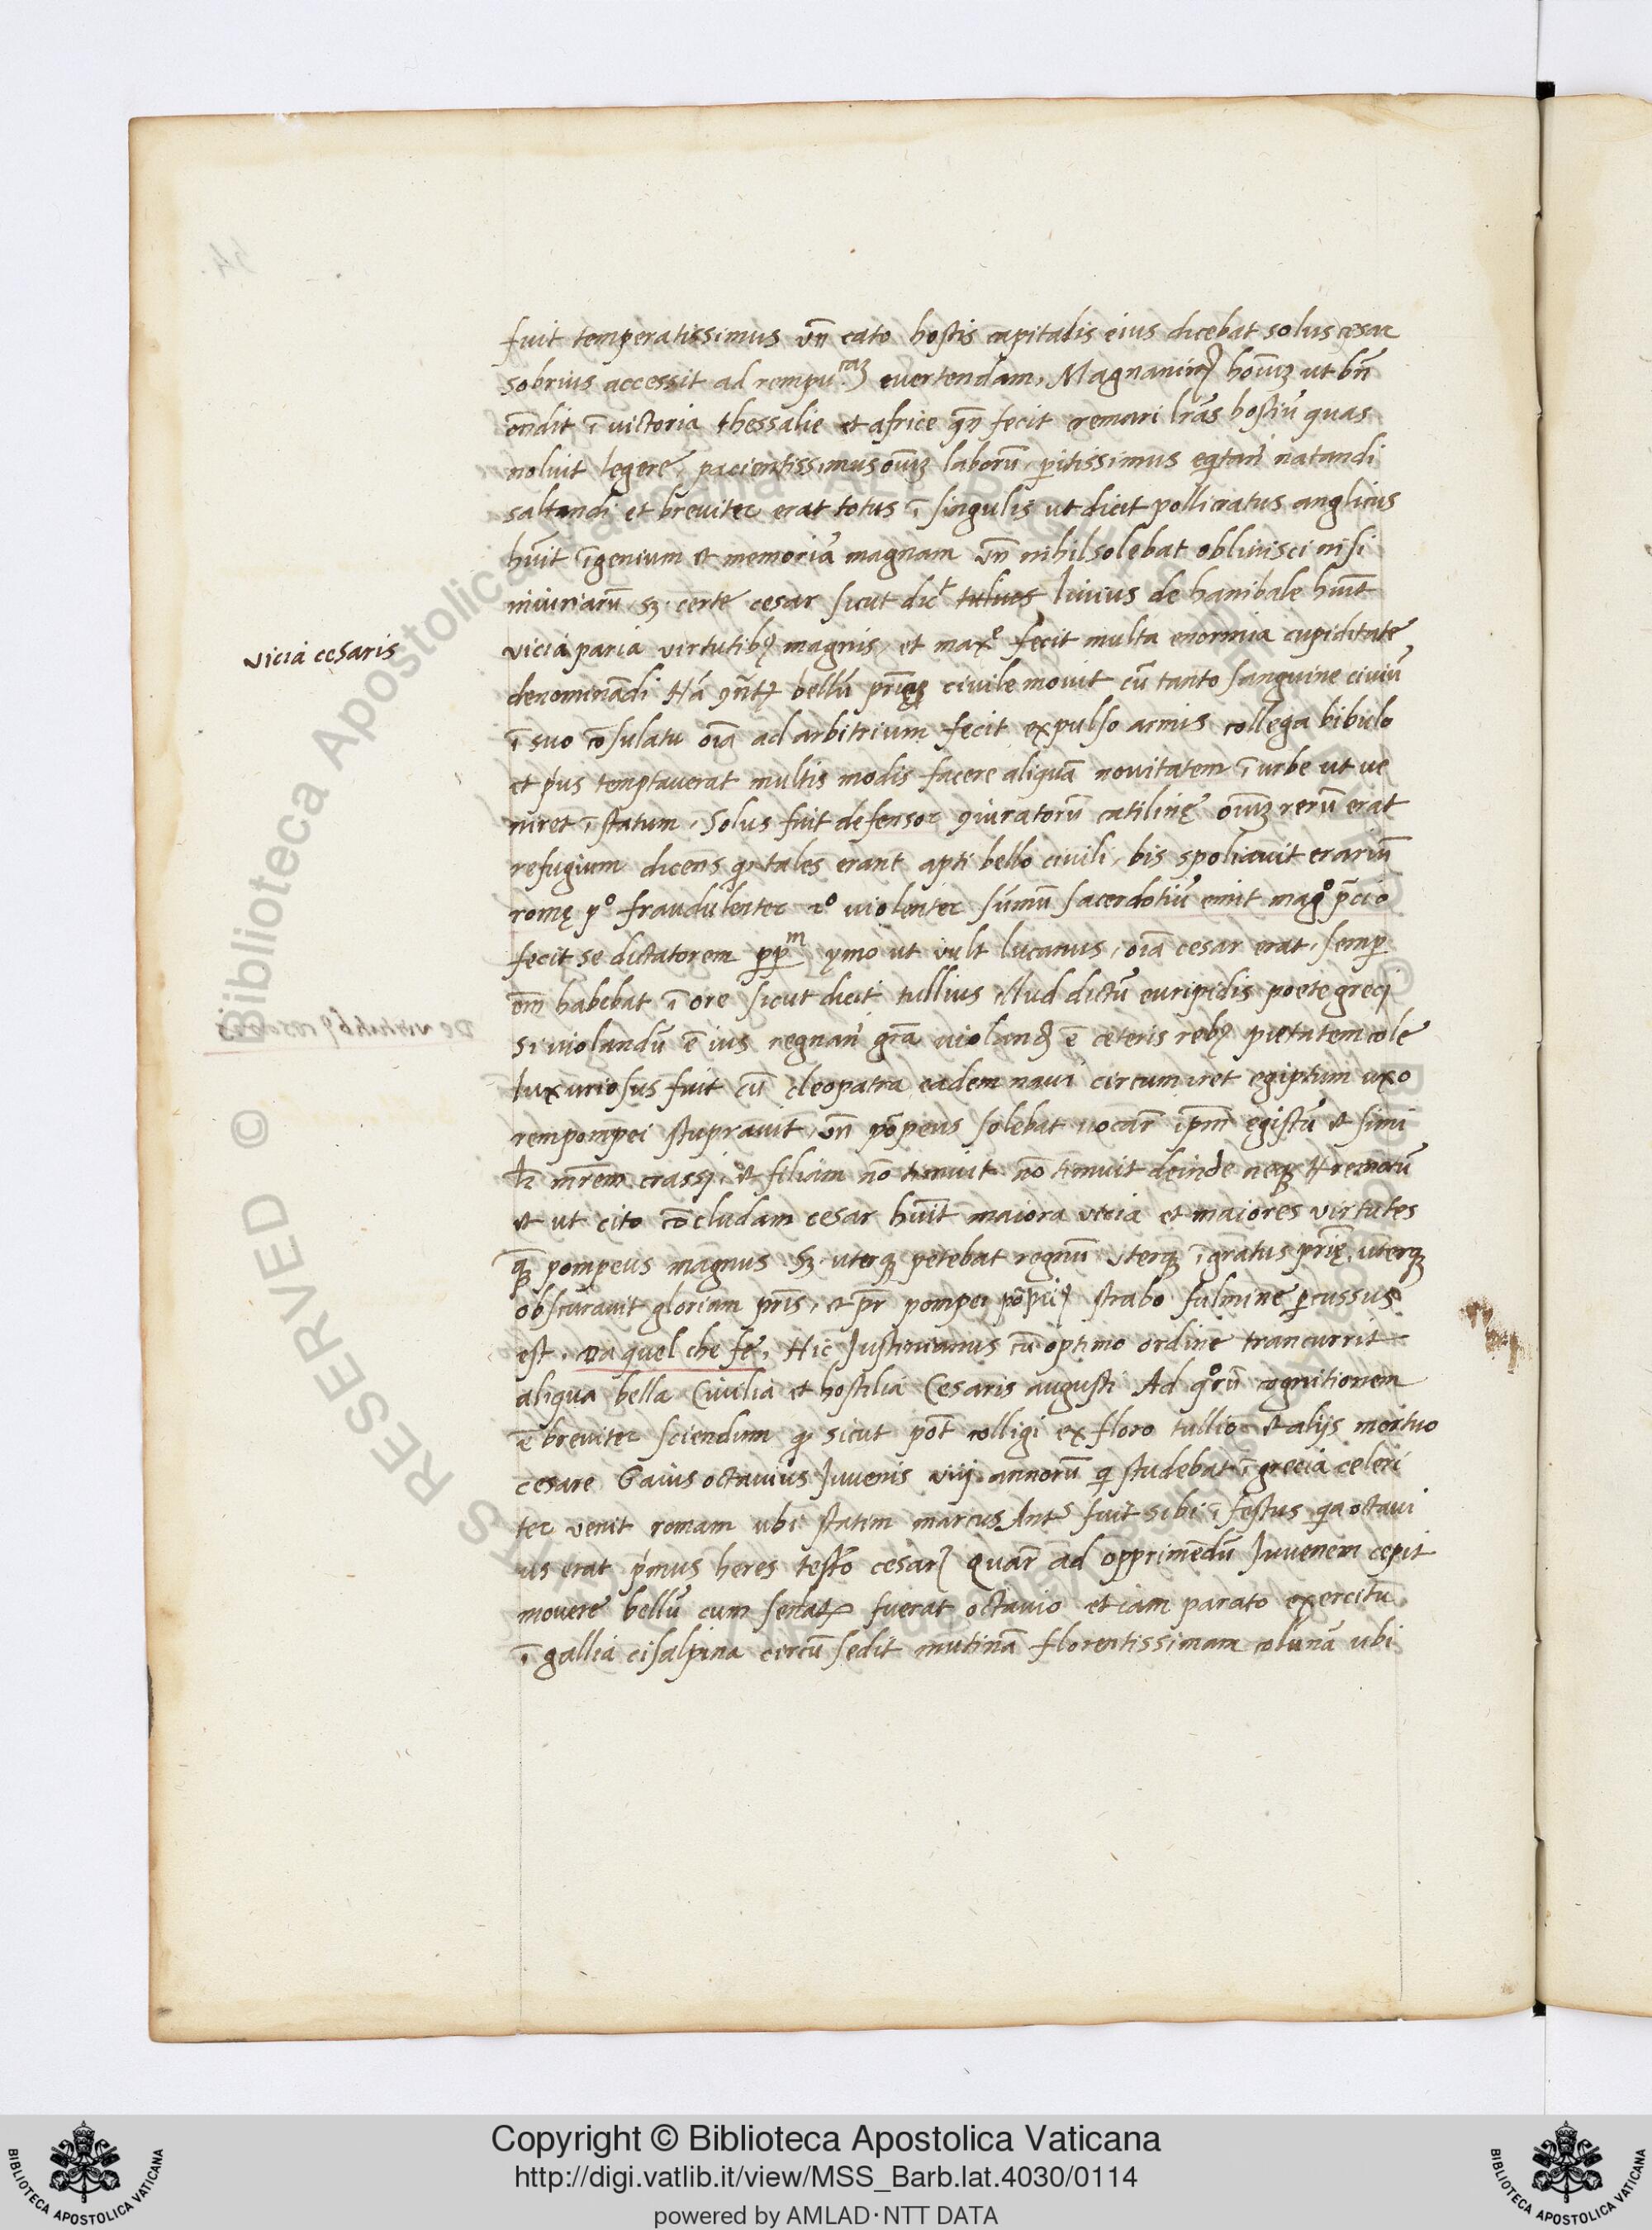 fuit temperatissimus vñ cato hostis capitalis eius dicebat solus cesar
sobrius accessit ad rempu.caʒ euertendam, Magnanimꝰ hoīuʒ ut bñ
oñdit ī uictoria thessalie et africe qñ fecit cremari lr̃as hostiū quas
noluit legere, pacientissimus oīuʒ laborū, pitissimus eqitañ natandi
saltandi et breuiter erat totus ī singulis ut dicit pollicratus anglicus
hũit īgenium & memoriā magnam vñ nihil solebat obliuisci nisi
iniuriarū, sʒ certe cesar sicut dic̃ tulius liuius de hanibale hũit
vicia cesaris
vicia paria virtutibꝰ magnis, et maxe fecit multa enormia cupiditate
denominādi bellū civile mouit cū tanto sanguine ciuiū
ī suo cōsulatu oīa ad arbitrium fecit expulso armis collega bibulo
et pius temptauerat multis modis facere aliquā nouitatem ī urbe ut ue
niret ī statum, Solus fuit defensor ꝯiuratorū catilinę oīuʒ rerū erat
refugium dicens ꝙ tales erant apti bello ciuili, bis spoliauit erariū
romę po fraudulenter 2o uiolenter sūmū sacerdotiū emit mago p̄cio
fecit se dictatorem ppm ymo ut vult lucanus, oīa cesar erat, semp
em habebat ī ore sicut dicit tullius illud dictū euripidis poete greci
Si uiolandū ē ius regnañ gr̃a uiolanꝰ ē ceteris rebꝰ pietatem cole
luxuriosus fuit cū cleopatra eadem naui circumiret egiptum uxo
rem pompei stuprauit, vñ pōpeus solebat uocar̃ ipm̃ egistū & simi
lr̃ mr̃em crassi, & filiam nō timuit nō timuit deinde neqʒ
& ut cito cōcludam cesar hũit maiora vicia et maiores virtutes
qʒ pompeus magnus sʒ uterqʒ petebat regnū uterqʒ īgratus prię, uterqʒ
obscurauit gloriam pr̃is, & pr̃ pompei pōpeiꝰ strabo fulmine pcussus
est. Da quel che fe, Hic Justinianus cū optimo ordine trancurrit
aliqua bella Ciuilia et hostilia Cesaris augusti Ad qorū cognitionem
ē breuiter sciendum ꝙ sicut pot̃ colligi ex floro tullio & alijs mortuo
cesare Gaius octauius Juuenis viij annorū qi studebat ī grecia celeri
ter venit romam ubi statim marcus Ants fuit sibi ī festus qa octaui
us erat pimus heres testo cesarꝭ Quar̃ ad opprimēdū Juuenem cepit
mouere bellū cum senatꝫ fuerat octauio et iam parato exercitu
ī gallia cisalpina circū sedit mutinā florentissimam colunā ubi
Copyright © Biblioteca Apostolica Vaticana
http://digi.vatlib.it/view/MSS_Barb.lat.4030/0114
powered by AMLAD·NTT DATA
BIBLIOTECA APOSTOLICA VATICANA
BIBLIOTECA APOSTOLICA VATICANA